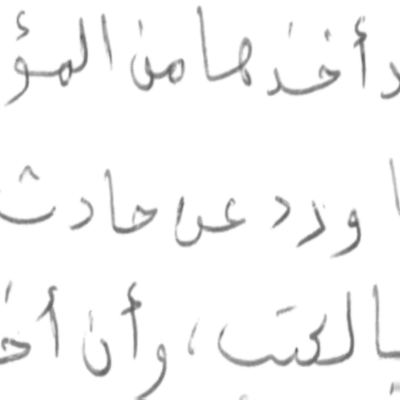 أخذها من المؤ
ورد عن حادث
بالكتب، وأن أخ